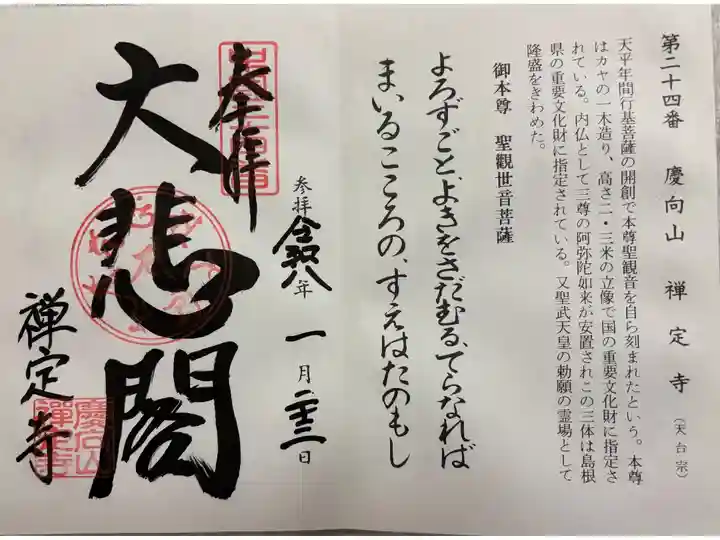 第二十四番　慶向山　禅定寺（天台宗）
天平年間行基菩薩の開創で本尊聖観音を自ら刻まれたという。本尊
はカヤの一木造り、高さ二・三米の立像で国の重要文化財に指定さ
れている。内仏として三尊の阿弥陀如来が安置されこの三体は島根
県の重要文化財に指定されている。又聖武天皇の勅願の霊場として
隆盛をきわめた。
御本尊　聖観世音菩薩
よろずごと、よきをさだむる、てらなれば
まいるこころの、すえはたのもし
参拝 令和八年 一月二十三日
奉拝
大悲閣
禅定寺
慶向山
禅定寺